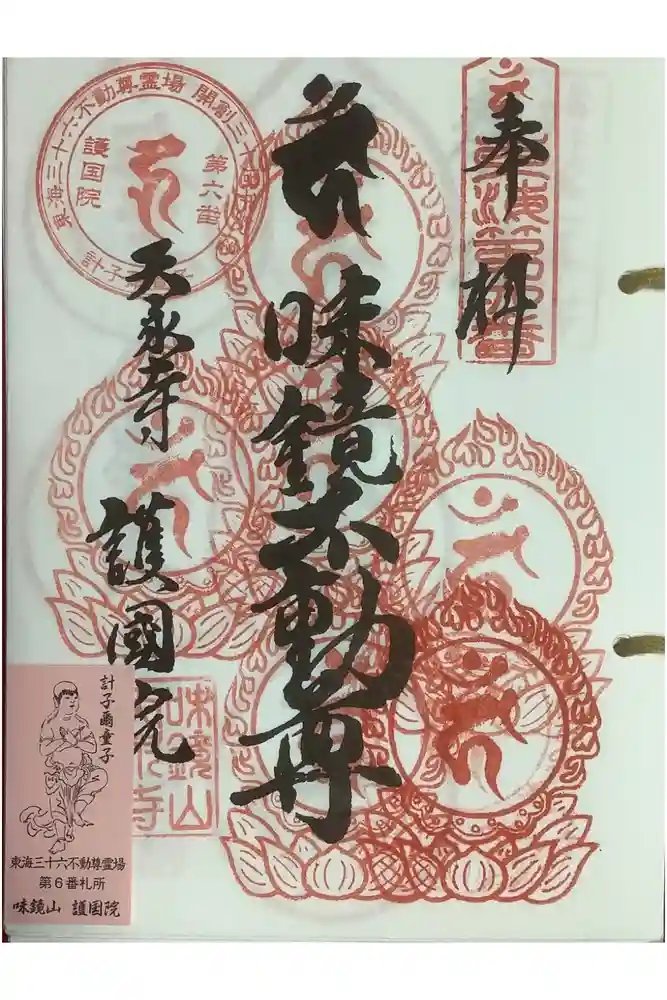 奉拝
味鏡不動尊
天永寺
護國院
東海三十六不動尊霊場 開創三十
第六番
護国院
計子
味鏡山
計子爾童子
東海三十六不動尊霊場
第6番札所
味鏡山 護国院